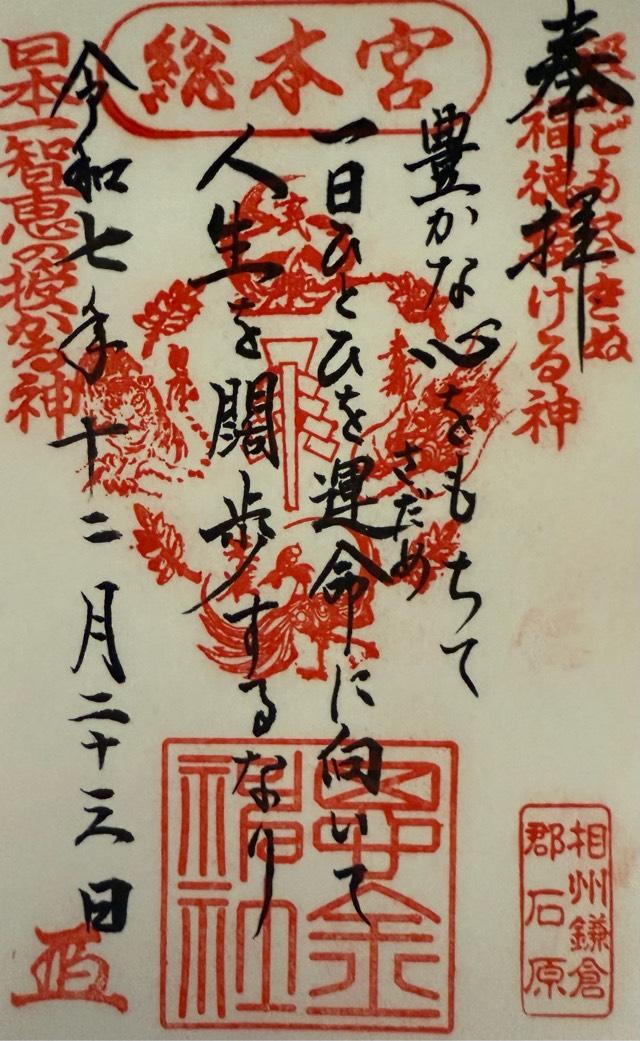 総本宮
奉拝
授けども尽きぬ
福徳授ける神
豊かな心をもちて
一日ひとひを運命に向いて
さだめ
人生を闊歩するなり
令和七年十二月二十三日
日本一智恵の授かる神
相州鎌倉
郡石原